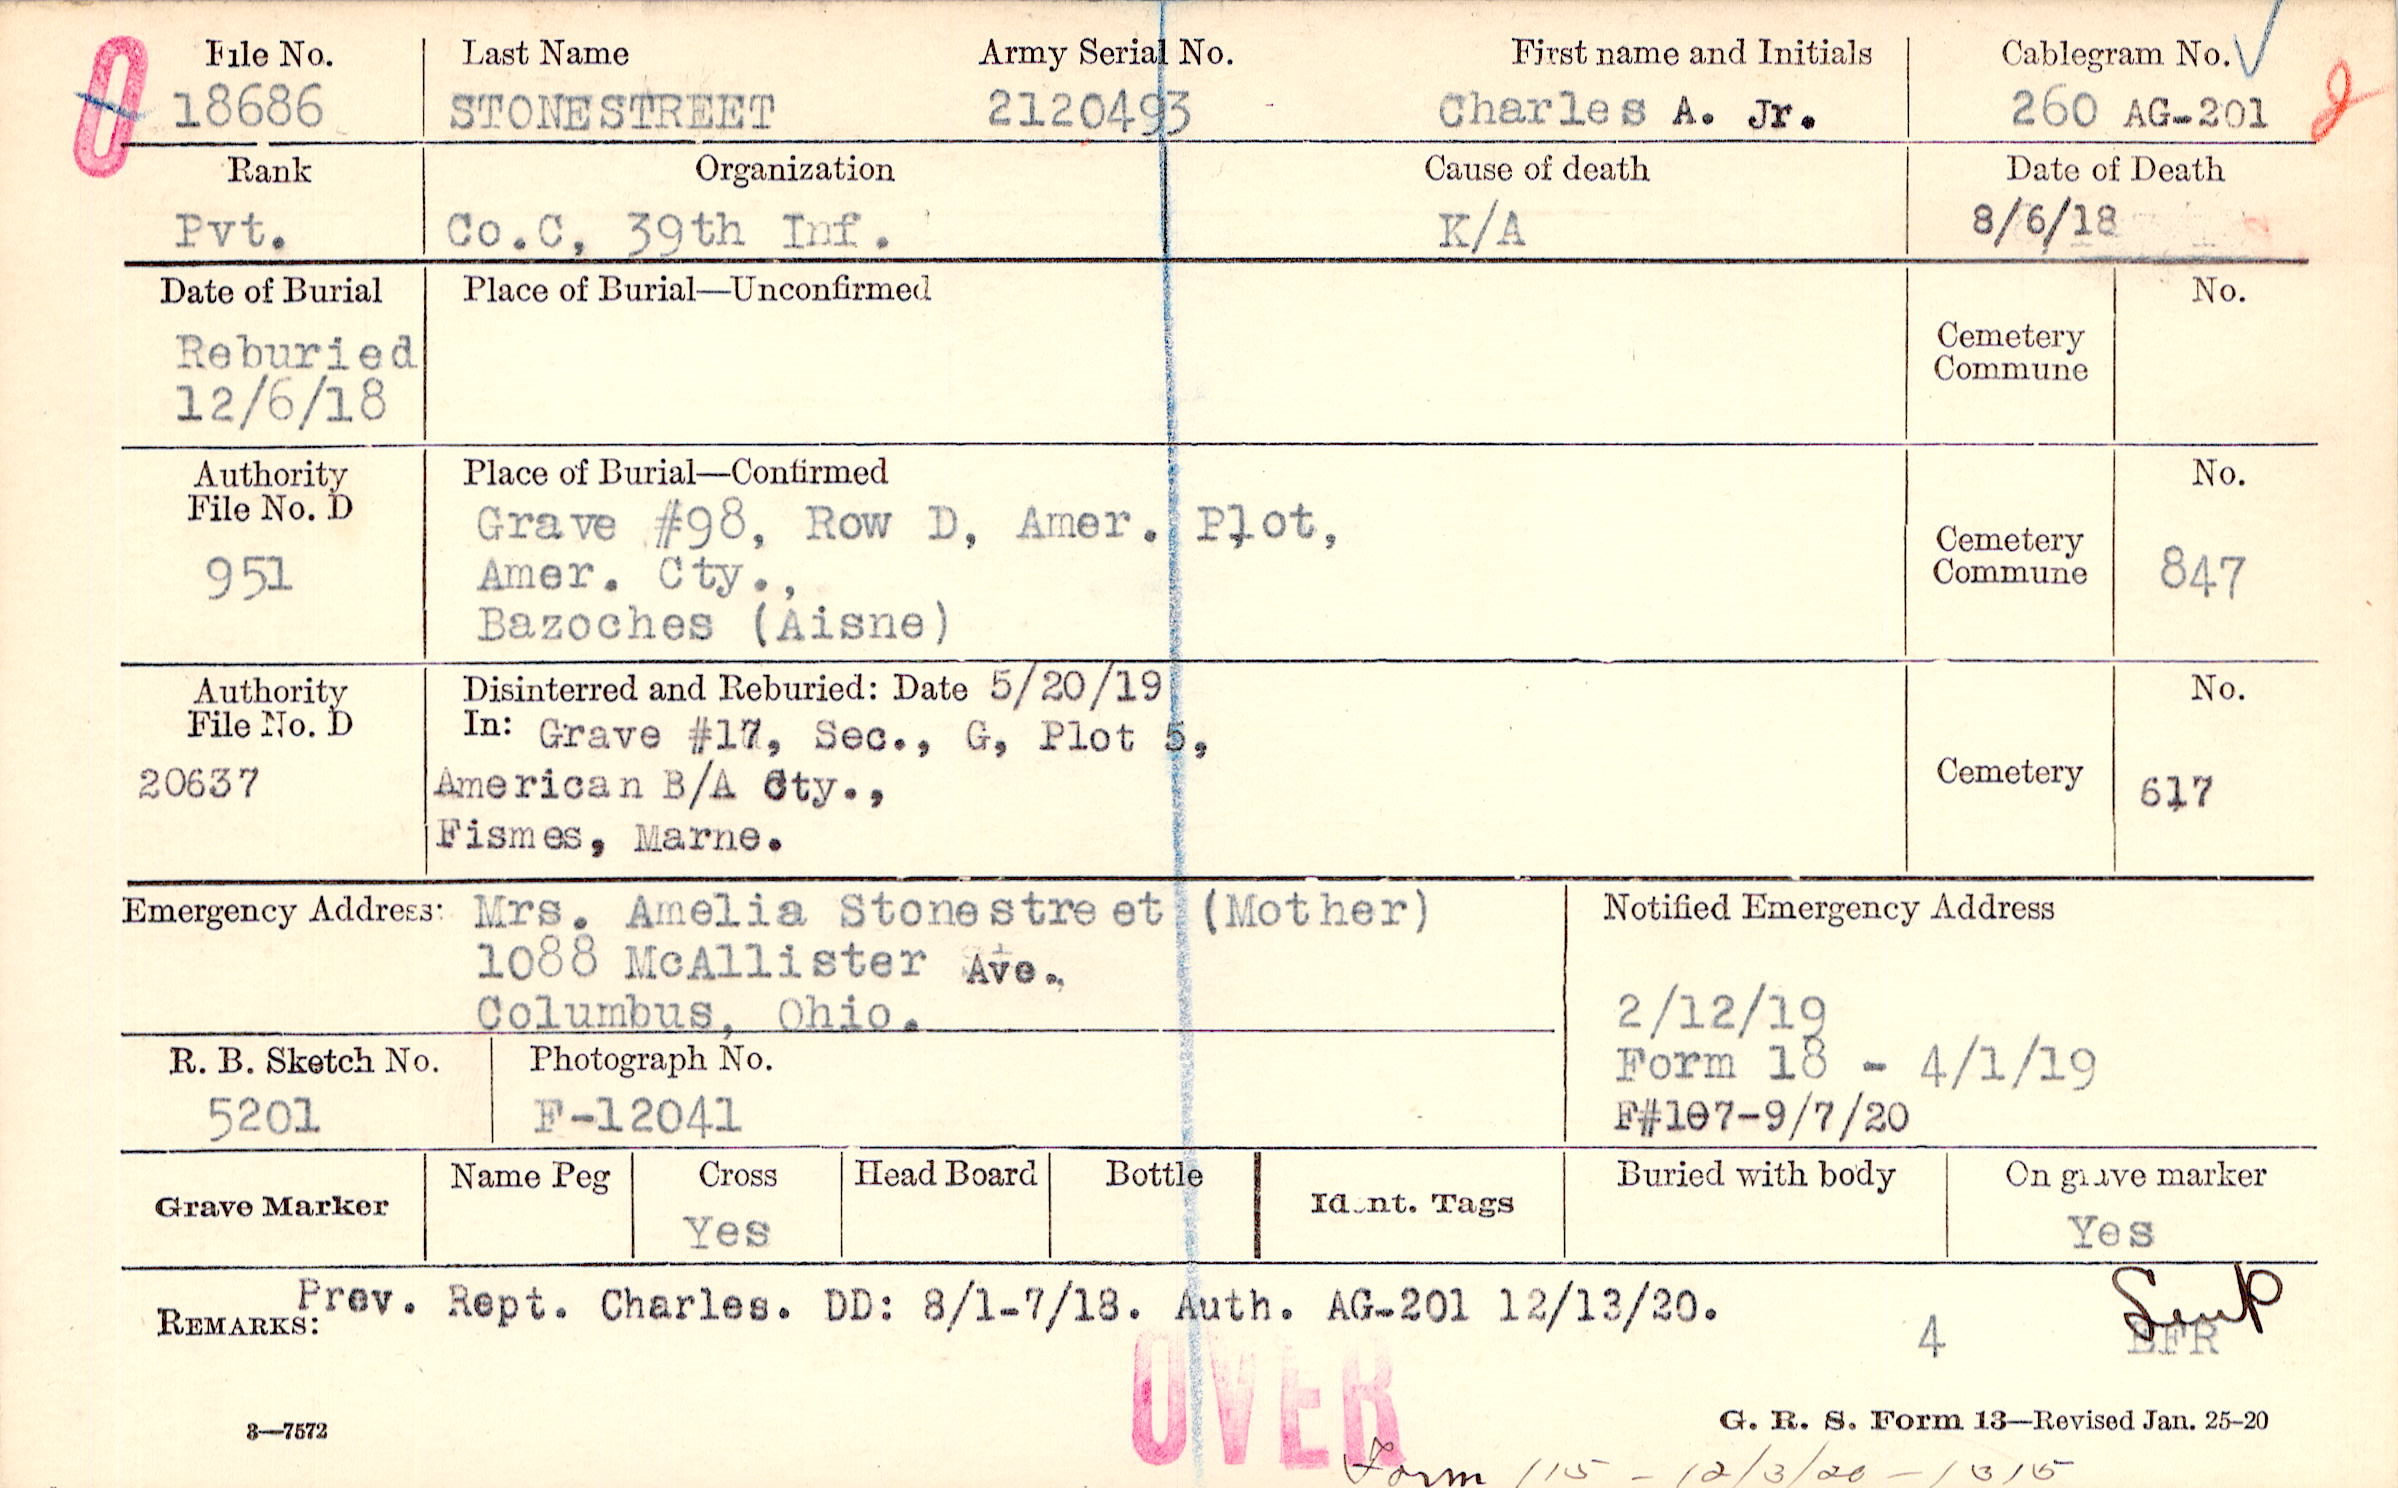 File No. Last Name Army Serial No. First name and Initials Cablegram No.
0 18686 STONESTREET 2120493 Charles A. Jr. 260 AG-201
Rank Organization Cause of death Date of Death
Pvt. Co.C, 39th Inf. K/A 8/6/18
Date of Burial Place of Burial—Unconfirmed No.
Cemetery
Commune
Reburied
12/6/18
Authority Place of Burial—Confirmed No.
File No. D
951
Grave #98, Row D, Amer. Plot,
Amer. Cty.,
Bazoches (Aisne)
Cemetery
Commune
847
Authority Disinterred and Reburied: Date 5/20/19 No.
File No. D In: Grave #17, Sec., G, Plot 5,
20637 American B/A Cty., Cemetery 617
Fismes, Marne.
Emergency Address: Mrs. Amelia Stonestreet (Mother)
1088 McAllister Ave.
Columbus, Ohio.
Notified Emergency Address
2/12/19
Form 18 - 4/1/19
F#107-9/7/20
R. B. Sketch No. Photograph No.
5201 F-12041
Grave Marker Name Peg Cross Head Board Bottle Ident. Tags Buried with body On grave marker
Yes Yes
REMARKS: Prev. Rept. Charles. DD: 8/1-7/18. Auth. AG-201 12/13/20.
4 EFR
OVER
3—7572 G. R. S. Form 13—Revised Jan. 25-20
Form 115 - 12/3/20 - 1315